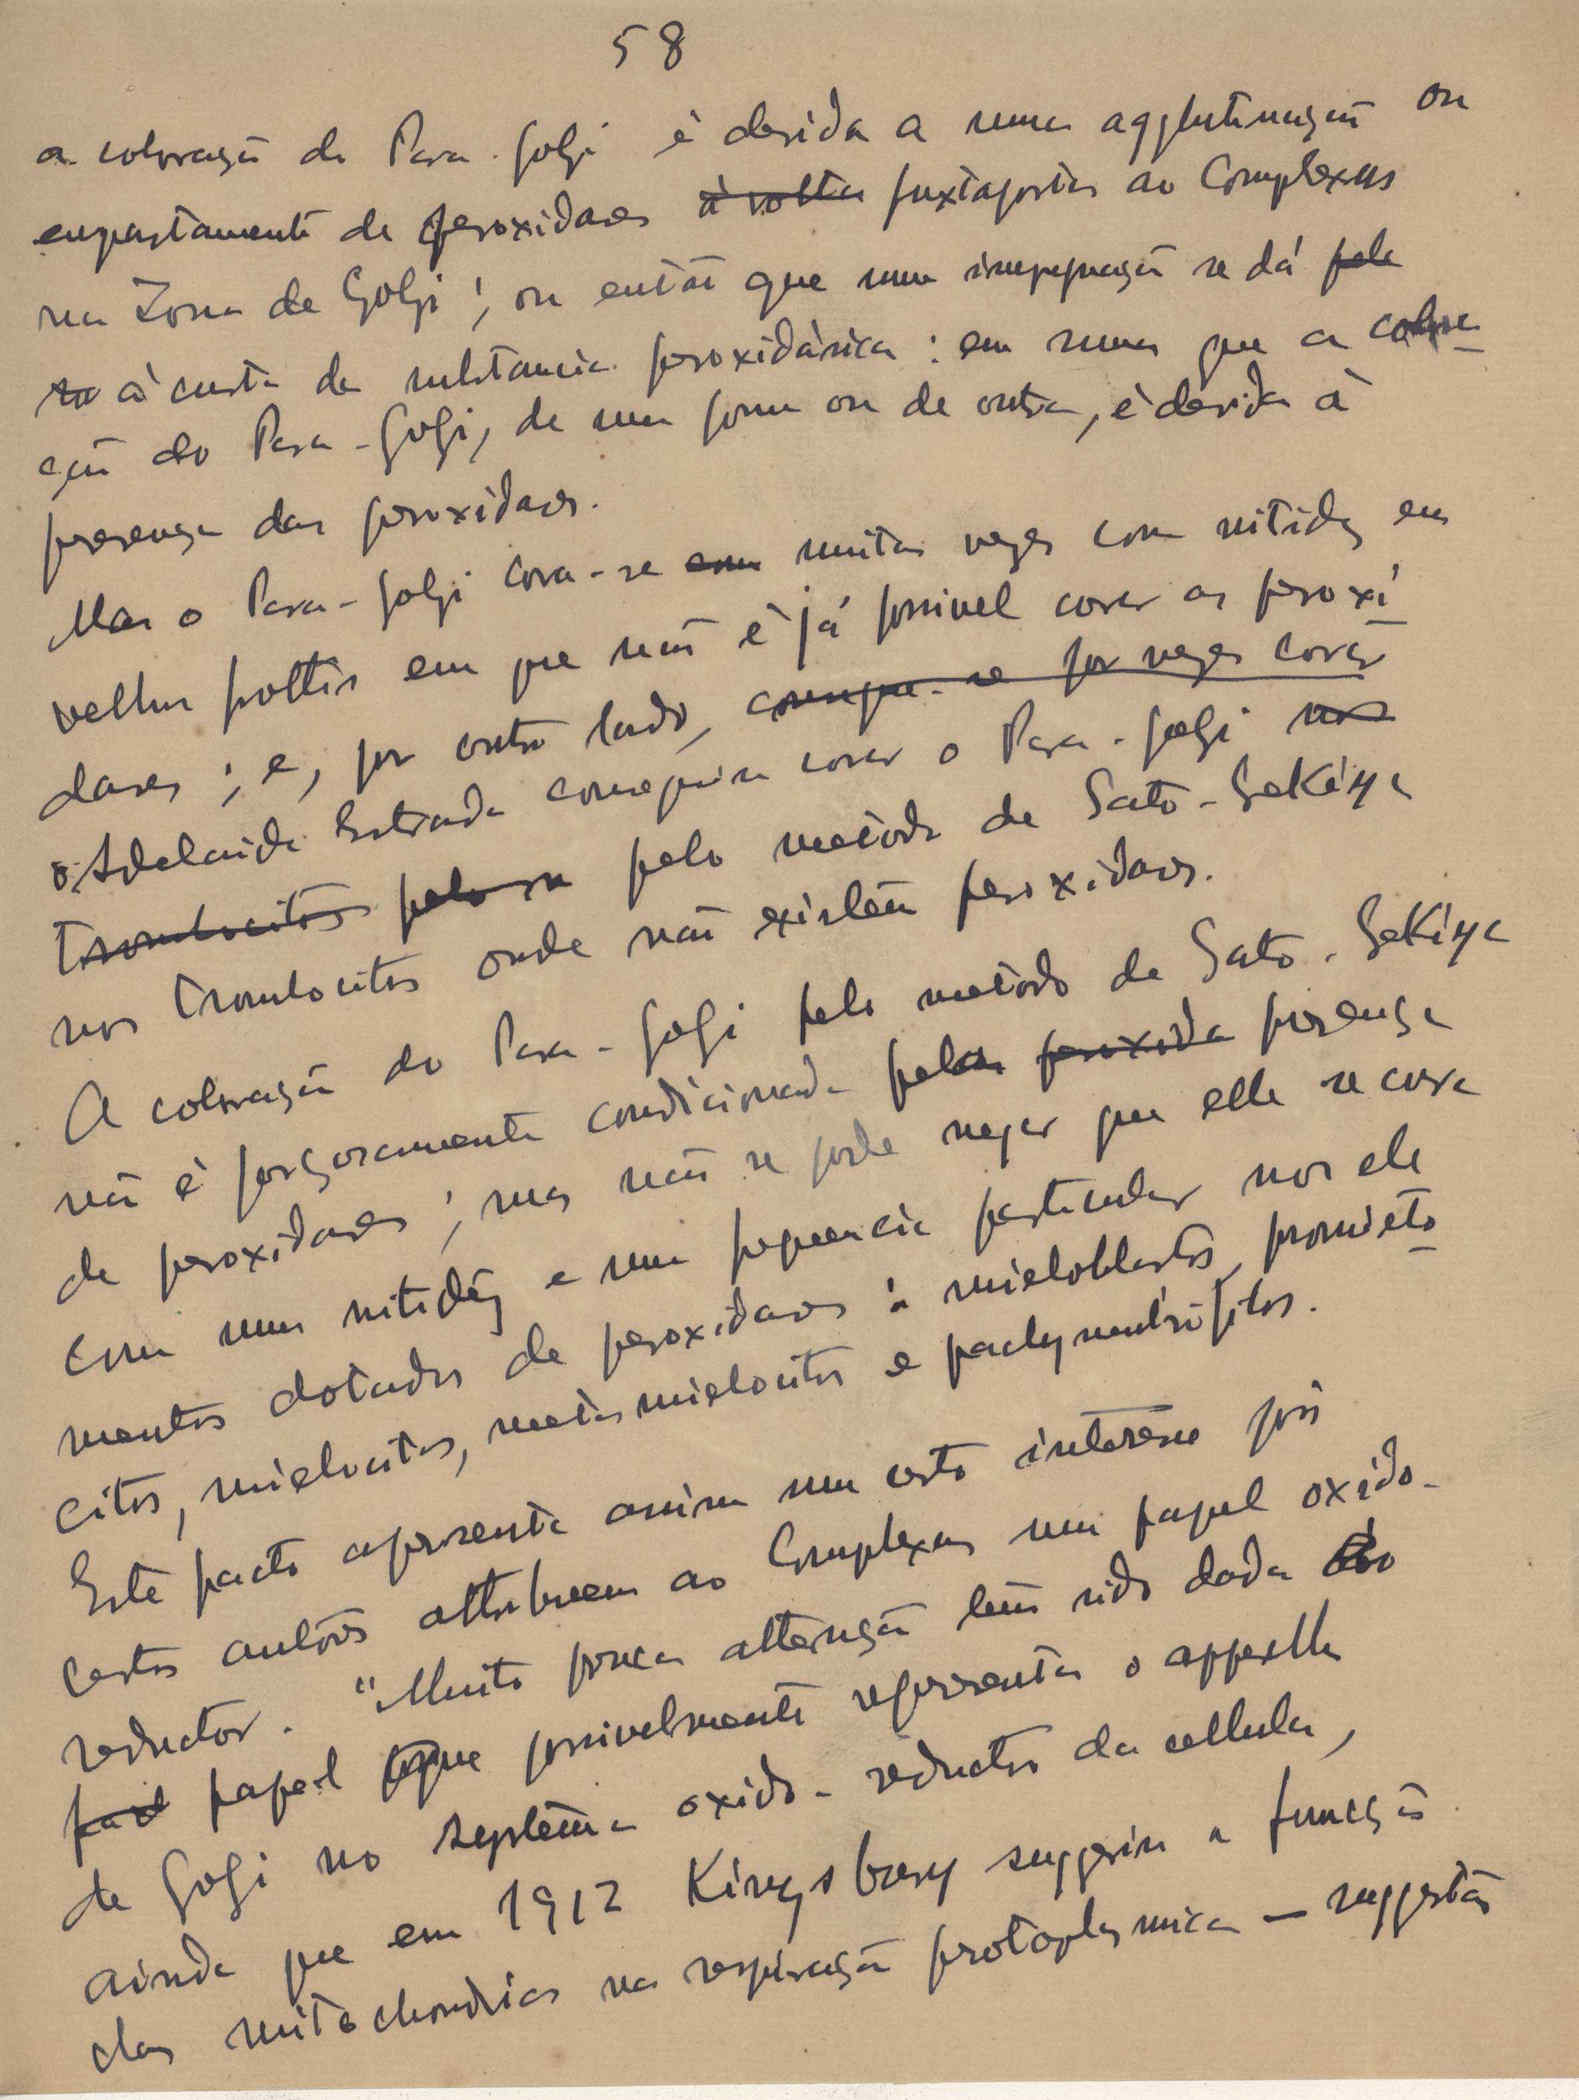 58
a coloração do Para-Golgi é devida a uma agglutinação ou
empastamento de peroxidases ~~à volta~~ juxtapostas ao Complexus
na Zona de Golgi; ou então que uma impregnação se dá ~~pela~~
à custa de substancia peroxidásica: em suma que a colora-
ção do Para-Golgi, de uma forma ou de outra, é devida à
presença das peroxidases.
Mas o Para-Golgi cora-se ~~com~~ muitas vezes com nitidez em
velhos frottis em que não é já possivel corar as peroxi-
dases; e, por outro lado, ~~consegue-se por vezes corar~~
Adelaide Estrada conseguiu corar o Para-Golgi ~~nos~~
~~Trombocitos~~ ~~pelo~~ pelo método de Sato-Sekiya
nos trombocitos onde não existem peroxidases.
A coloração do Para-Golgi pelo método de Sato-Sekiya
não é forçosamente condicionada pela ~~peroxida~~ presença
de peroxidases; mas não se pode negar que elle se cora
com uma nitidez e uma frequencia particular nos ele
mentos dotados de peroxidases: mieloblastos, promielo-
citos, mielocitos, metamielocitos e polyneutrófilos.
Este facto apresenta assim um certo interesse pois
certos autores attribuem ao Complexus um papel oxido-
reductor. "Muito pouca attenção tem sido dada ao
papel que possivelmente representa o apparelho
de Golgi no systema oxido-reductor da cellula,
ainda que em 1912 Kingsbury suggeriu a funcção
das mitochondrias na respiração protoplasmica — suggestão